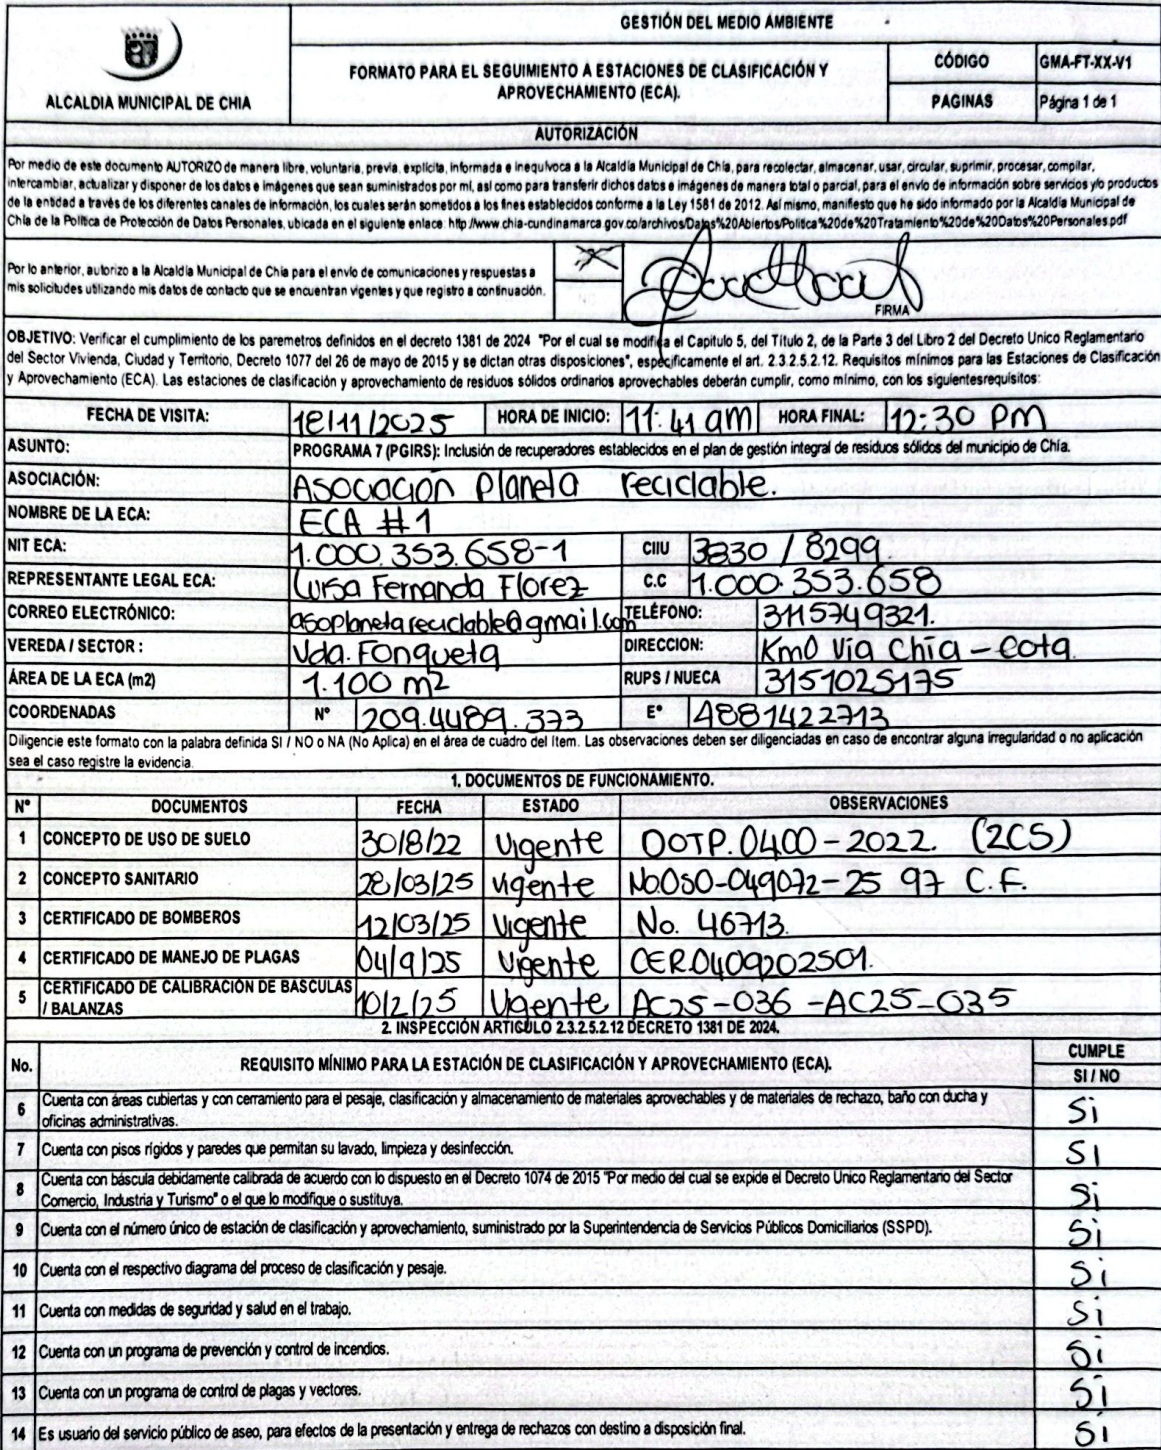 GESTIÓN DEL MEDIO AMBIENTE
ALCALDIA MUNICIPAL DE CHIA
FORMATO PARA EL SEGUIMIENTO A ESTACIONES DE CLASIFICACIÓN Y
APROVECHAMIENTO (ECA).
CÓDIGO GMA-FT-XX-V1
PAGINAS Página 1 de 1
AUTORIZACIÓN
Por medio de este documento AUTORIZO de manera libre, voluntaria, previa, explícita, informada e inequívoca a la Alcaldía Municipal de Chía, para recolectar, almacenar, usar, circular, suprimir, procesar, compilar,
intercambiar, actualizar y disponer de los datos e imágenes que sean suministrados por mí, así como para transferir dichos datos e imágenes de manera total o parcial, para el envío de información sobre servicios y/o productos
de la entidad a través de los diferentes canales de información, los cuales serán sometidos a los fines establecidos conforme a la Ley 1581 de 2012. Así mismo, manifiesto que he sido informado por la Alcaldía Municipal de
Chía de la Política de Protección de Datos Personales, ubicada en el siguiente enlace: http://www.chia-cundinamarca.gov.co/archivos/Datos%20Abiertos/Politica%20de%20Tratamiento%20de%20Datos%20Personales.pdf
Por lo anterior, autorizo a la Alcaldía Municipal de Chía para el envío de comunicaciones y respuestas a
mis solicitudes utilizando mis datos de contacto que se encuentran vigentes y que registro a continuación.
X
FIRMA
OBJETIVO: Verificar el cumplimiento de los paremetros definidos en el decreto 1381 de 2024 "Por el cual se modifica el Capitulo 5, del Título 2, de la Parte 3 del Libro 2 del Decreto Unico Reglamentario
del Sector Vivienda, Ciudad y Territorio, Decreto 1077 del 26 de mayo de 2015 y se dictan otras disposiciones", específicamente el art. 2.3.2.5.2.12. Requisitos mínimos para las Estaciones de Clasificación
y Aprovechamiento (ECA). Las estaciones de clasificación y aprovechamiento de residuos sólidos ordinarios aprovechables deberán cumplir, como mínimo, con los siguientesrequisitos:
FECHA DE VISITA: 18/11/2025 HORA DE INICIO: 11:41 am HORA FINAL: 12:30 PM
ASUNTO: PROGRAMA 7 (PGIRS): Inclusión de recuperadores establecidos en el plan de gestión integral de residuos sólidos del municipio de Chía.
ASOCIACIÓN: Asociación Planeta reciclable.
NOMBRE DE LA ECA: ECA #1
NIT ECA: 1.000.353.658-1 CIIU 3830 / 8299.
REPRESENTANTE LEGAL ECA: Luisa Fernanda Florez C.C 1.000.353.658
CORREO ELECTRÓNICO: asoplanetareciclable@gmail.com TELÉFONO: 3115749321.
VEREDA / SECTOR : Vda. Fonqueta DIRECCION: Km0 Via Chía - Cota.
ÁREA DE LA ECA (m2) 1.100 m2 RUPS / NUECA 3151025175
COORDENADAS N° 209.4489.373 E° 4881422713
Diligencie este formato con la palabra definida SI / NO o NA (No Aplica) en el área de cuadro del ítem. Las observaciones deben ser diligenciadas en caso de encontrar alguna irregularidad o no aplicación
sea el caso registre la evidencia.
1. DOCUMENTOS DE FUNCIONAMIENTO.
N° DOCUMENTOS FECHA ESTADO OBSERVACIONES
1 CONCEPTO DE USO DE SUELO 30/8/22 Vigente DOTP.0400-2022. (2CS)
2 CONCEPTO SANITARIO 28/03/25 vigente No.OSO-049072-25 97 C.F.
3 CERTIFICADO DE BOMBEROS 12/03/25 Vigente No. 46713.
4 CERTIFICADO DE MANEJO DE PLAGAS 04/9/25 Vigente CER0409202501.
5 CERTIFICADO DE CALIBRACIÓN DE BÁSCULAS
/ BALANZAS 10/2/25 Vigente AC25-036 -AC25-035
2. INSPECCIÓN ARTICULO 2.3.2.5.2.12 DECRETO 1381 DE 2024.
No. REQUISITO MÍNIMO PARA LA ESTACIÓN DE CLASIFICACIÓN Y APROVECHAMIENTO (ECA). CUMPLE
SI / NO
6 Cuenta con áreas cubiertas y con cerramiento para el pesaje, clasificación y almacenamiento de materiales aprovechables y de materiales de rechazo, baño con ducha y
oficinas administrativas. Si
7 Cuenta con pisos rígidos y paredes que permitan su lavado, limpieza y desinfección. SI
8 Cuenta con báscula debidamente calibrada de acuerdo con lo dispuesto en el Decreto 1074 de 2015 "Por medio del cual se expide el Decreto Unico Reglamentario del Sector
Comercio, Industria y Turismo" o el que lo modifique o sustituya. Si
9 Cuenta con el número único de estación de clasificación y aprovechamiento, suministrado por la Superintendencia de Servicios Públicos Domiciliarios (SSPD). Si
10 Cuenta con el respectivo diagrama del proceso de clasificación y pesaje. Si
11 Cuenta con medidas de seguridad y salud en el trabajo. Si
12 Cuenta con un programa de prevención y control de incendios. Si
13 Cuenta con un programa de control de plagas y vectores. Si
14 Es usuario del servicio público de aseo, para efectos de la presentación y entrega de rechazos con destino a disposición final. Si